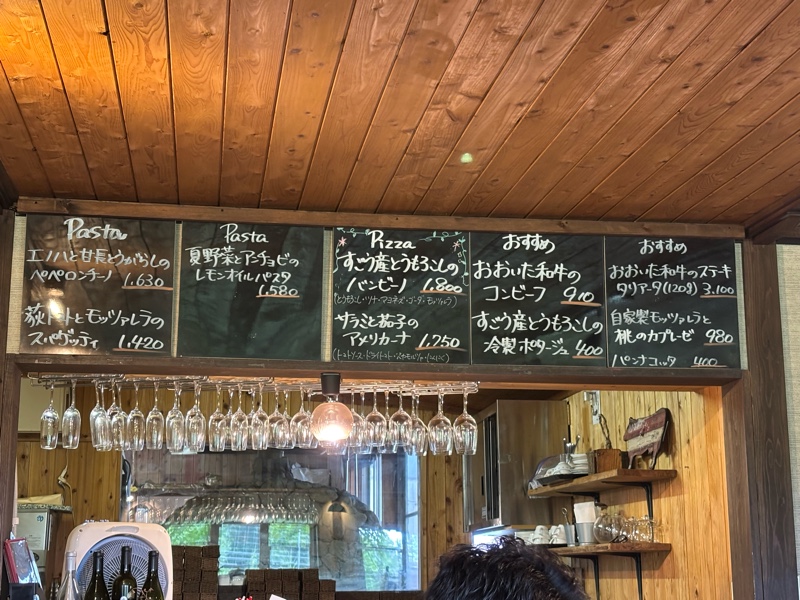 Pasta
エノハと甘長とうがらしの
ペペロンチーノ 1.630
荻トマトとモッツァレラの
スパゲッティ 1.420
Pasta
夏野菜とアンチョビの
レモンオイルパスタ
1.580
Pizza
すごう産とうもろこしの
バンビーノ 1.800
(とうもろこし・ツナ・マヨネーズ・ゴーダ・モッツァレラ)
サラミと茄子の
アメリカーナ 1.750
(トマトソース・ドライトマト・スカモルツァ・にんにく)
おすすめ
おおいた和牛の
コンビーフ 910
すごう産とうもろこしの
冷製ポタージュ 400
おすすめ
おおいた和牛のステーキ
タリアータ(120g) 3.100
自家製モッツァレラと
桃のカプレーゼ 980
パンナコッタ 400